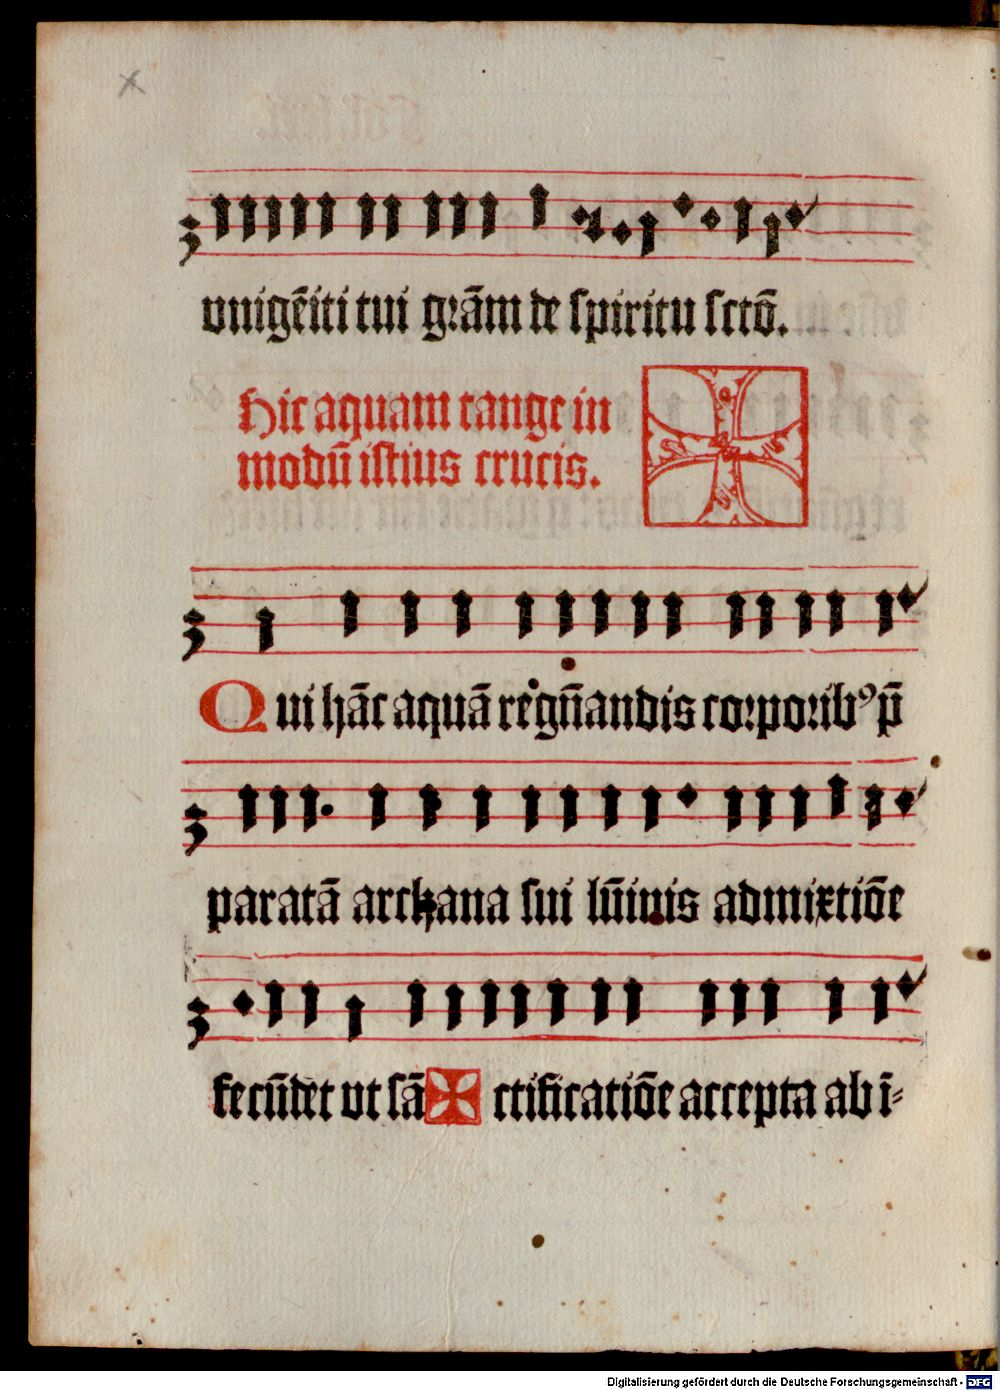 vnigēiti tui grām de spiritu sctō.
Hic aquam tange in
modū istius crucis.
Qui hāc aquā regn̄andis corporibꝰ p̄
paratā archana sui lūinis admixtiōe
fecūdet vt sā ctificatiōe accepta ab ī⸗
Digitalisierung gefördert durch die Deutsche Forschungsgemeinschaft - DFG